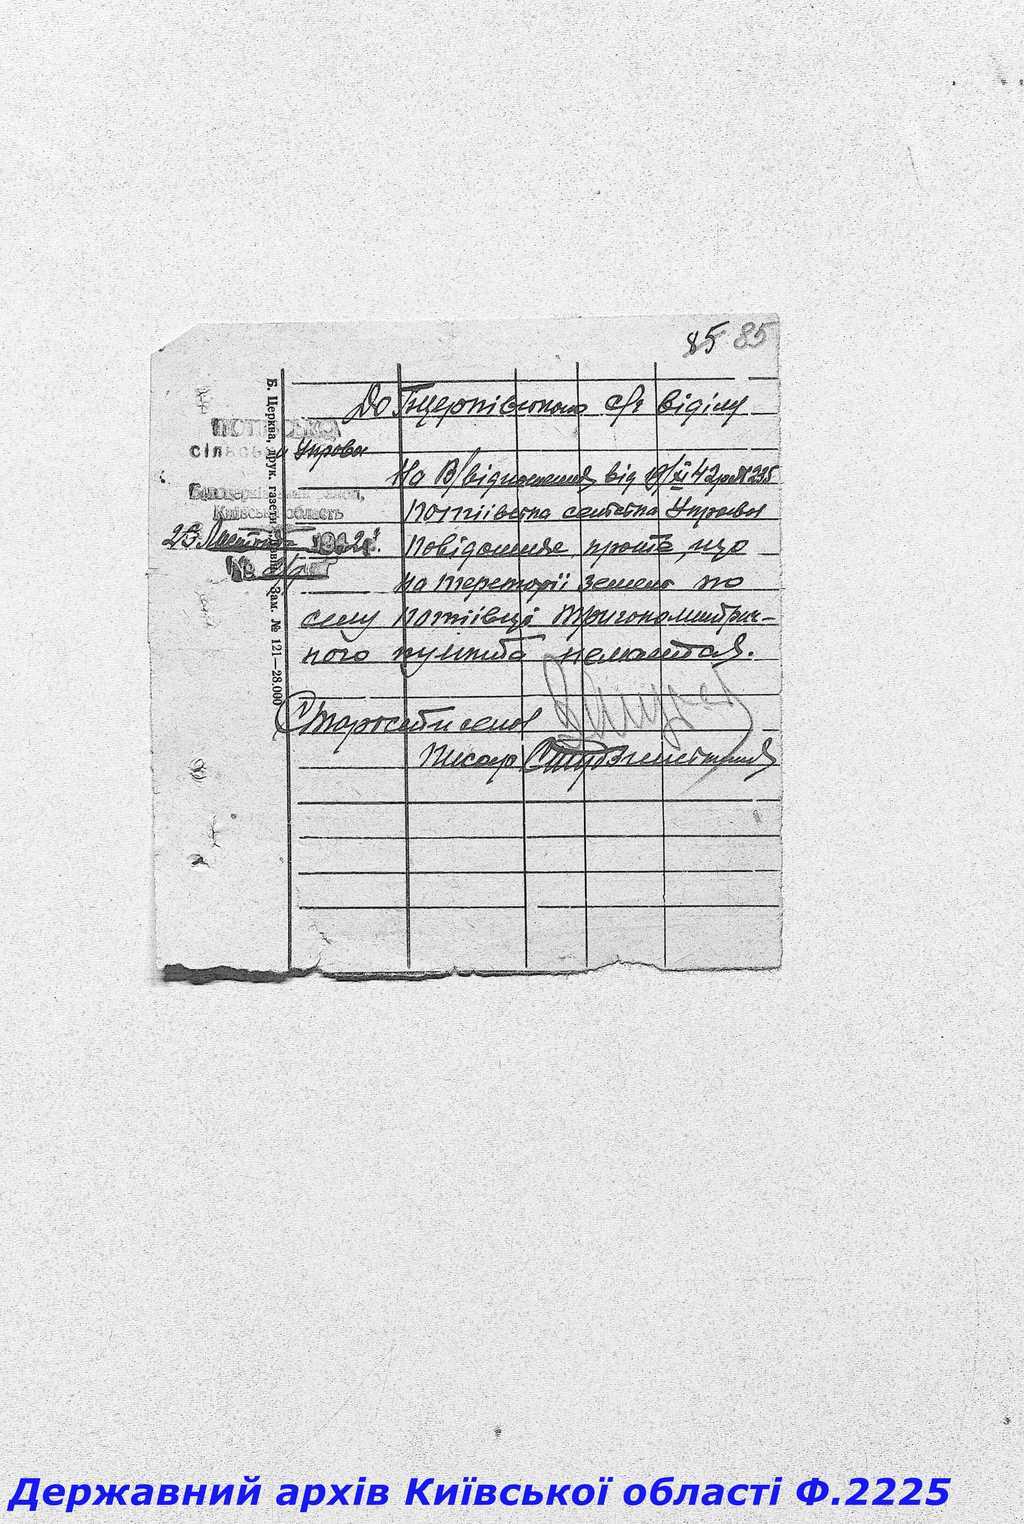 85 85
До Б/церківського с/г відділу
ПОТІЇВСЬКА
сільська Управа
Білоцерківський район,
Київська область
23 Листопада 1942 р.
№
На В/відношення від 19/XI 42 р. № 235
Потіївська сельська Управа
повідомляє проте що
на території земель по
селу Потіївці тригонометрич-
ного пункта немається.
Староста села
Писар
Б. Церква, друк. газети Зам. № 121—28.000
Державний архів Київської області Ф.2225